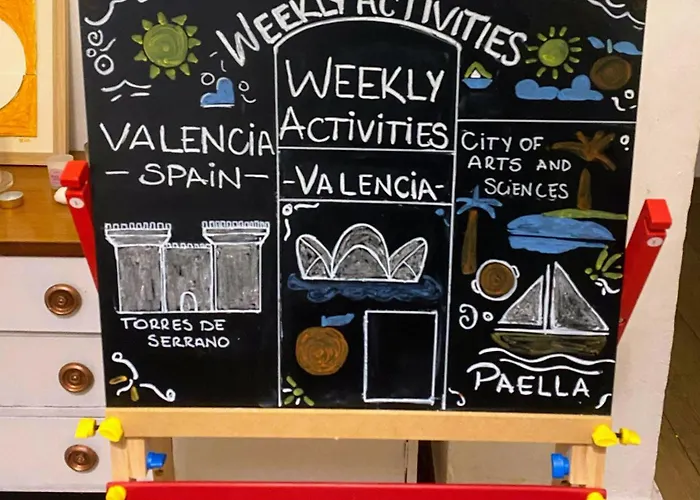 WEEKLY ACTIVITIES
VALENCIA
— SPAIN —
TORRES DE
SERRANO
WEEKLY
ACTIVITIES
- VALENCIA -
CITY OF
ARTS AND
SCIENCES
PAELLA